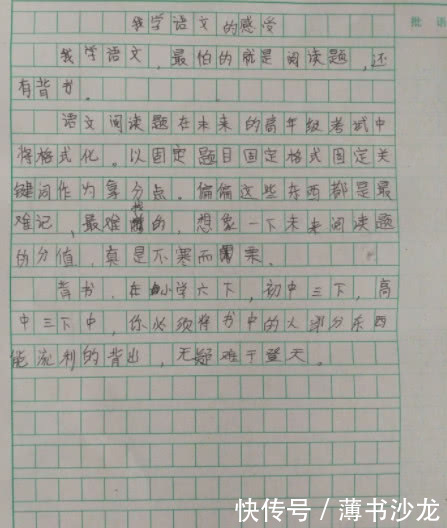 我学语文的感受
批语
我学语文，最怕的就是阅读题，还
有背书。
语文阅读题在未来的高年级考试中
将格式化。以固定题目固定格式固定关
键词作为拿分点。偏偏这些东西都是最
难记，最难的，想象一下未来阅读题
的分值，真是不寒而栗。
背书，在小学六下，初中三下，高
中三下中，你必须将书中的大部分东西
能流利的背出，无疑难于登天。
快传号/薄书沙龙